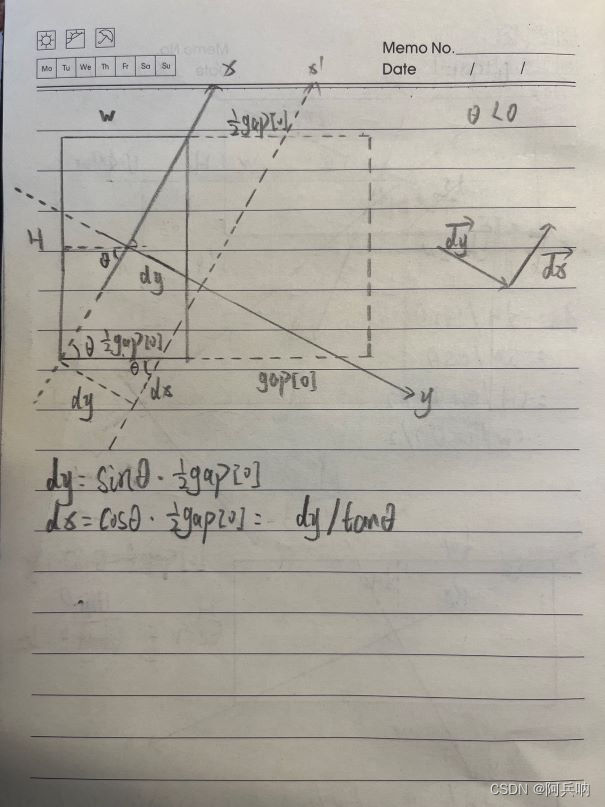 Memo No.
Mo Tu We Th Fr Sa Su
Date / /
x x'
W ½gap[0] θ < 0
H
θ dy
dy dx
θ ½gap[0]
θ
dy dx gap[0] y
dy = sinθ · ½gap[0]
dx = cosθ · ½gap[0] = dy/tanθ
CSDN @阿兵呐